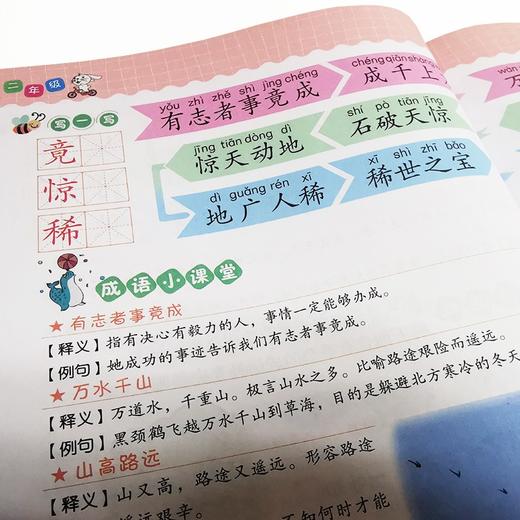 二年级
yǒu zhì zhě shì jìng chéng
有志者事竟成
chéng qiān shàng
成千上
万
jīng tiān dòng dì
惊天动地
shí pò tiān jīng
石破天惊
dì guǎng rén xī
地广人稀
xī shì zhī bǎo
稀世之宝
写一写
竟
惊
稀
成语小课堂
★有志者事竟成
【释义】指有决心有毅力的人，事情一定能够办成。
【例句】她成功的事迹告诉我们有志者事竟成。
★万水千山
【释义】万道水，千重山。极言山水之多。比喻路途艰险而遥远。
【例句】黑颈鹤飞越万水千山到草海，目的是躲避北方寒冷的冬天
★山高路远
【释义】山又高，路途又遥远。形容路途
遥远艰辛。
不知何时才能